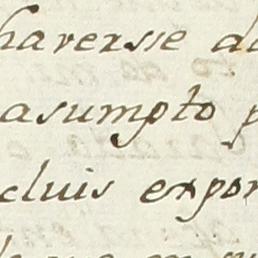 haversse a
asumpto p
cluis expon